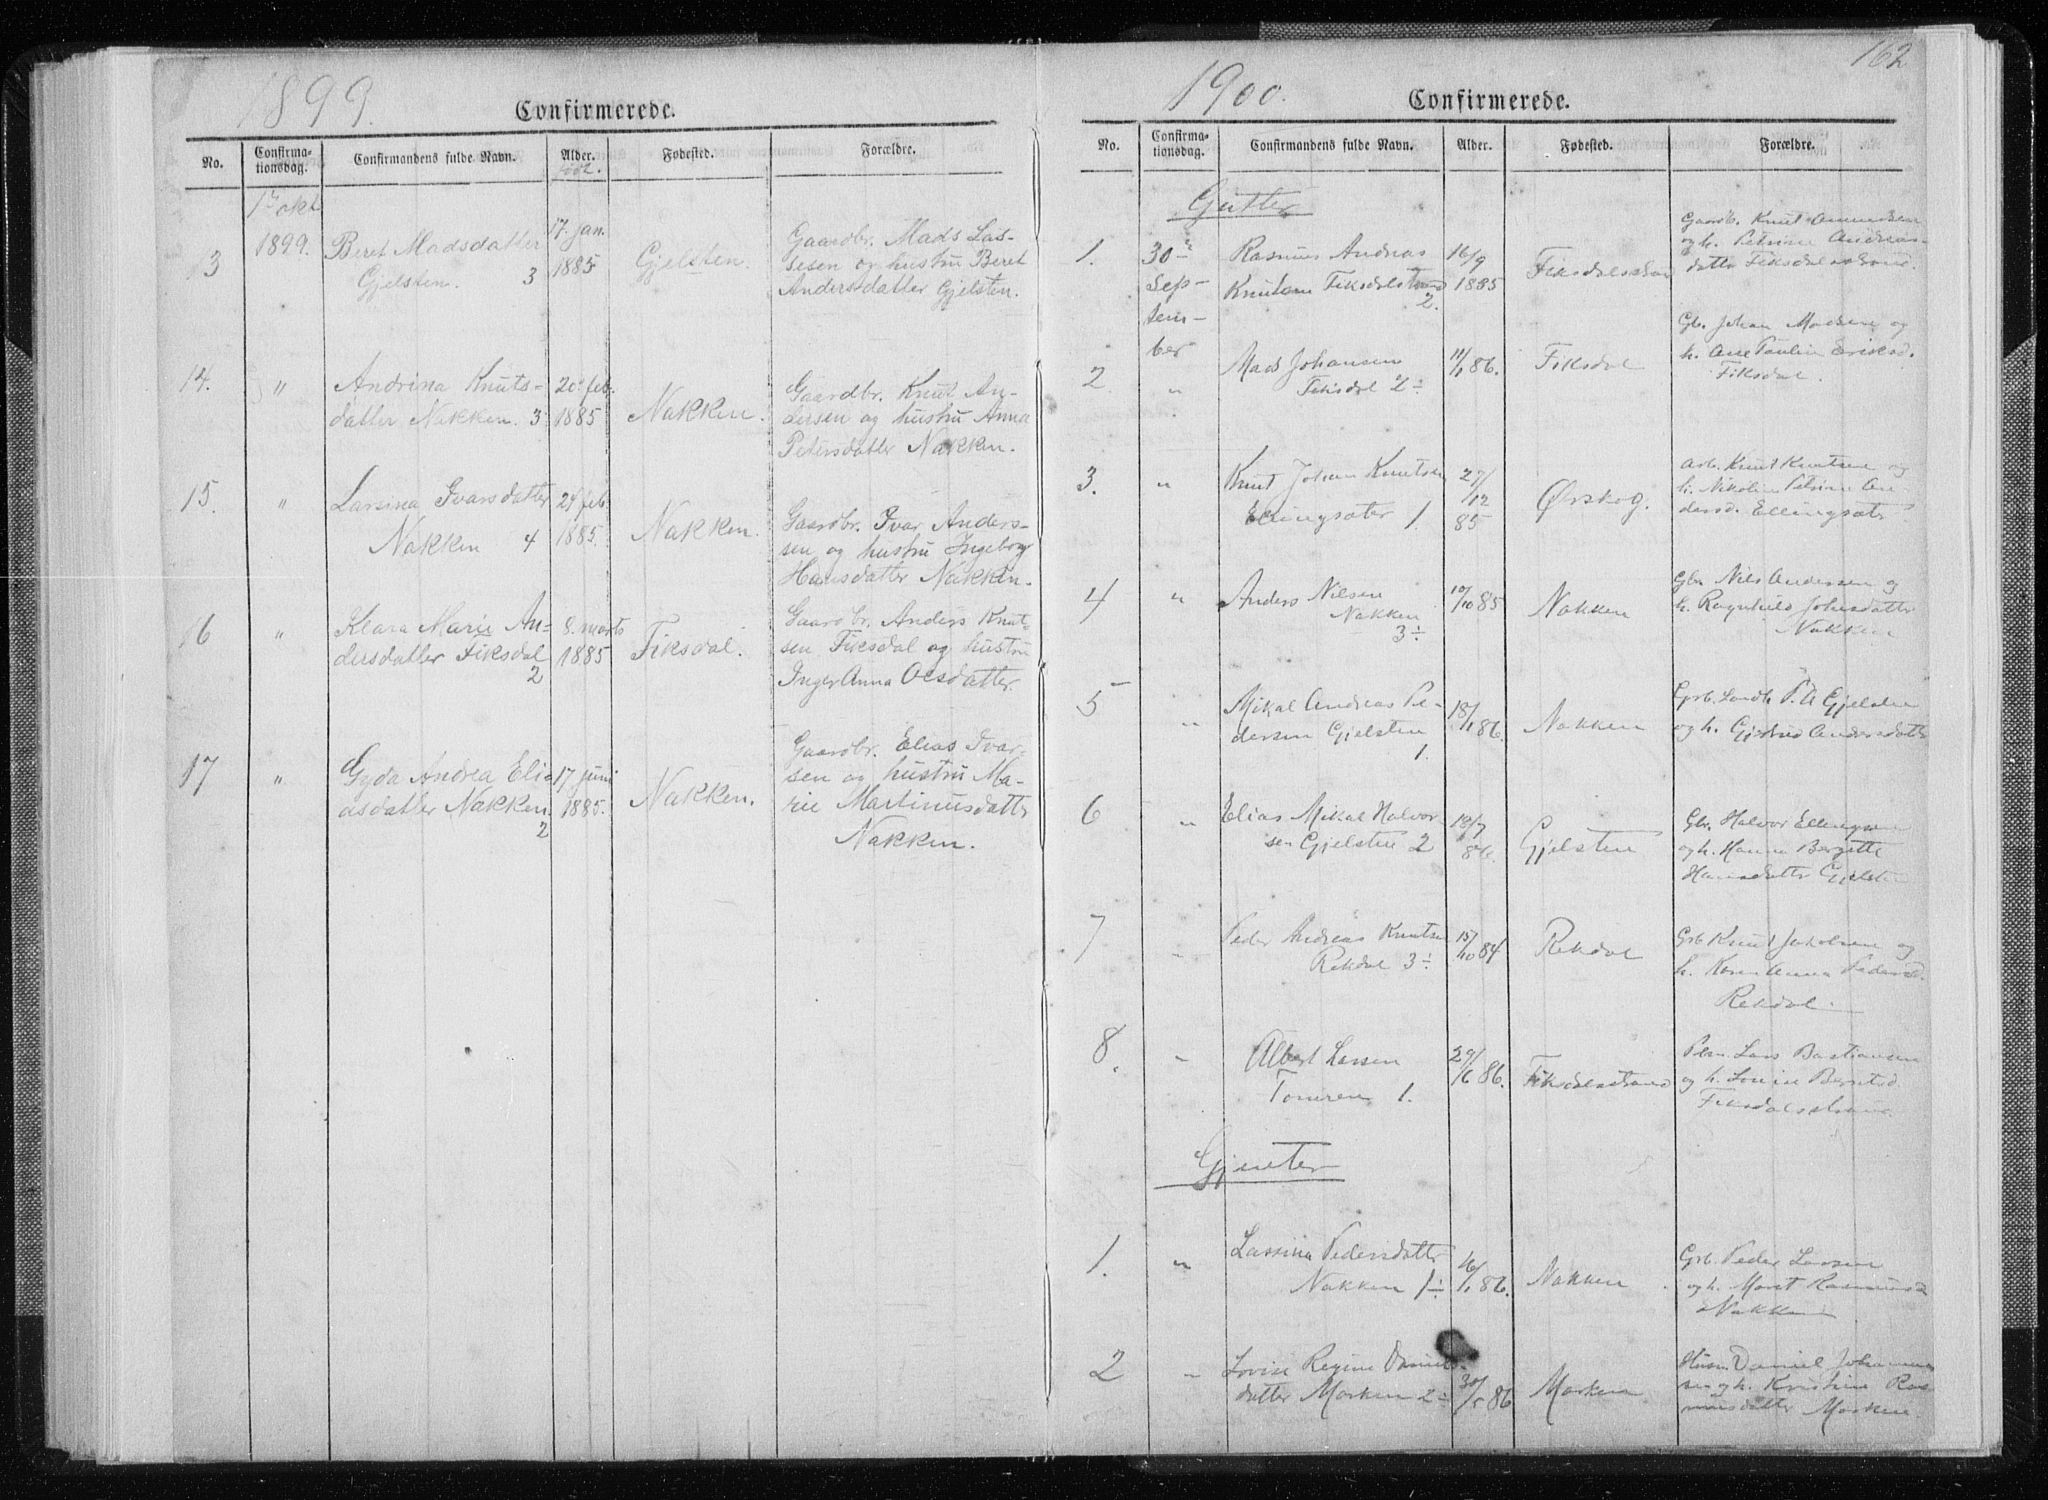 1899.
Confirmerede.
No.
Confirma-
tionsdag.
Confirmandens fulde Navn.
Alder.
født.
Fødested.
Forældre.
1ste okt
1899.
13
Beret Madsdatter
Gjelsten. 3
17. jan.
1885
Gjelsten.
Gaardbr. Mads Las-
sesen og hustru Beret
Andersdatter Gjelsten.
14.
"
Andrina Knuts-
datter Nakken. 3
20de feb.
1885
Nakken.
Gaardbr. Knut An-
dersen og hustru Anna
Petersdatter Nakken.
15.
"
Larsina Ivarsdatter
Nakken 4
24 feb.
1885.
Nakken.
Gaardbr. Ivar Anders-
sen og hustru Ingeborg
Hansdatter Nakken.
16
"
Klara Marie An-
dersdatter Fiksdal
2
8. marts
1885
Fiksdal.
Gaardbr. Anders Knut-
sen Fiksdal og hustru
Inger Anna Olsdatter.
17
"
Gyda Andrea Eli-
asdatter Nakken.
2
17 juni
1885.
Nakken.
Gaardbr. Elias Ivar-
sen og hustru Ma-
rie Martinusdatter
Nakken.
162
1900.
Confirmerede.
No.
Confirma-
tionsdag.
Confirmandens fulde Navn.
Alder.
Fødested.
Forældre.
Gutter
1.
30te
Sep-
tem-
ber
Rasmus Andreas
Knutsen Fiksdalstrand
2.
16/9
1885
Fiksdalsstrand
Gaardb. Knut
og h. Petrine Andreas-
datter Fiksdalsstrand.
2.
"
Mads Johansen
Fiksdal 2÷
11/1 86.
Fiksdal
Gb. Johan Madsen og
h. Ane Pauline Eriksd.
Fiksdal.
3.
"
Knut Johan Knutsen
Ellingsæter 1.
27/12
85
Ørskog.
Arb. Knut Knutsen og
h. Nikoline Petrine An
dersd. Ellingsæter
4
"
Anders Nilsen
Nakken
3÷
10/10 85
Nakken
Gbr. Nils Andersen og
h. Ragnhild Johnsdatter
Nakken
5
"
Mikal Andreas Pe-
dersen Gjelsten
1.
18/1 86.
Nakken
P. A Gjelsten
og h. Gjertrud Andersdatter
6
"
Elias Mikal Halvor
sen Gjelsten 2
18/7
86.
Gjelsten
Gbr. Halvor Ellingsen
og h. Hanna Bergitte
Hansdatter Gjelsten
7
"
Peder Andreas Knutsen
Rekdal 3÷
15/10 84
Rekdal
Grb Knut Jakobsen og
h. Karen Anna Pedersd.
Rekdal.
8.
"
Albert Larsen
Tomren 1.
29/6 86.
Fiksdalsstrand
Lars Bastiansen
og h. Lovise Berntsd.
Fiksdalsstrand.
Gjenter
1.
"
Larsina Pedersdatter
Nakken 1÷
16/1 86.
Nakken
Grb. Peder Larsen
og h. Marit Rasmusd
Nakken
2
"
Lovise Regine Daniels-
datter Morken 2÷
30/5 86
Morken
Husm Daniel Johannes
sen og h. Kristine Ras
musdatter Morken.